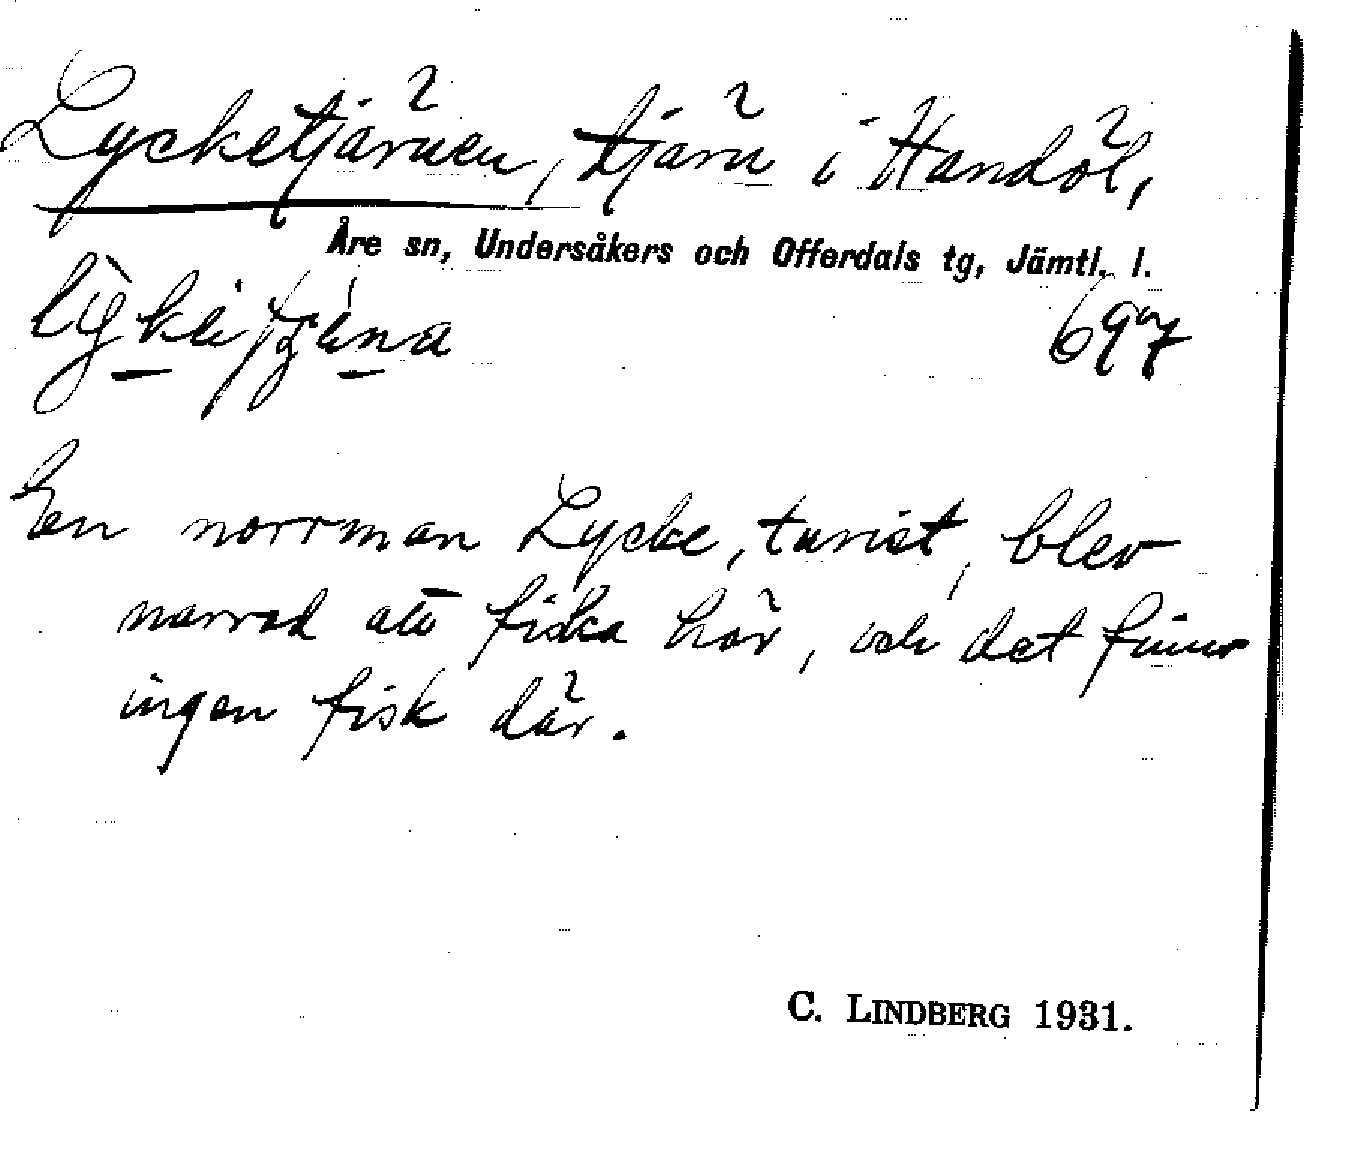 Lycketjärnen, tjärn i Handöl,
Åre sn, Undersåkers och Offerdals tg, Jämtl. l.
En norrman Lycke, turist, blev
narrad att fiska här, och det finns
ingen fisk där.
C. LINDBERG 1931.